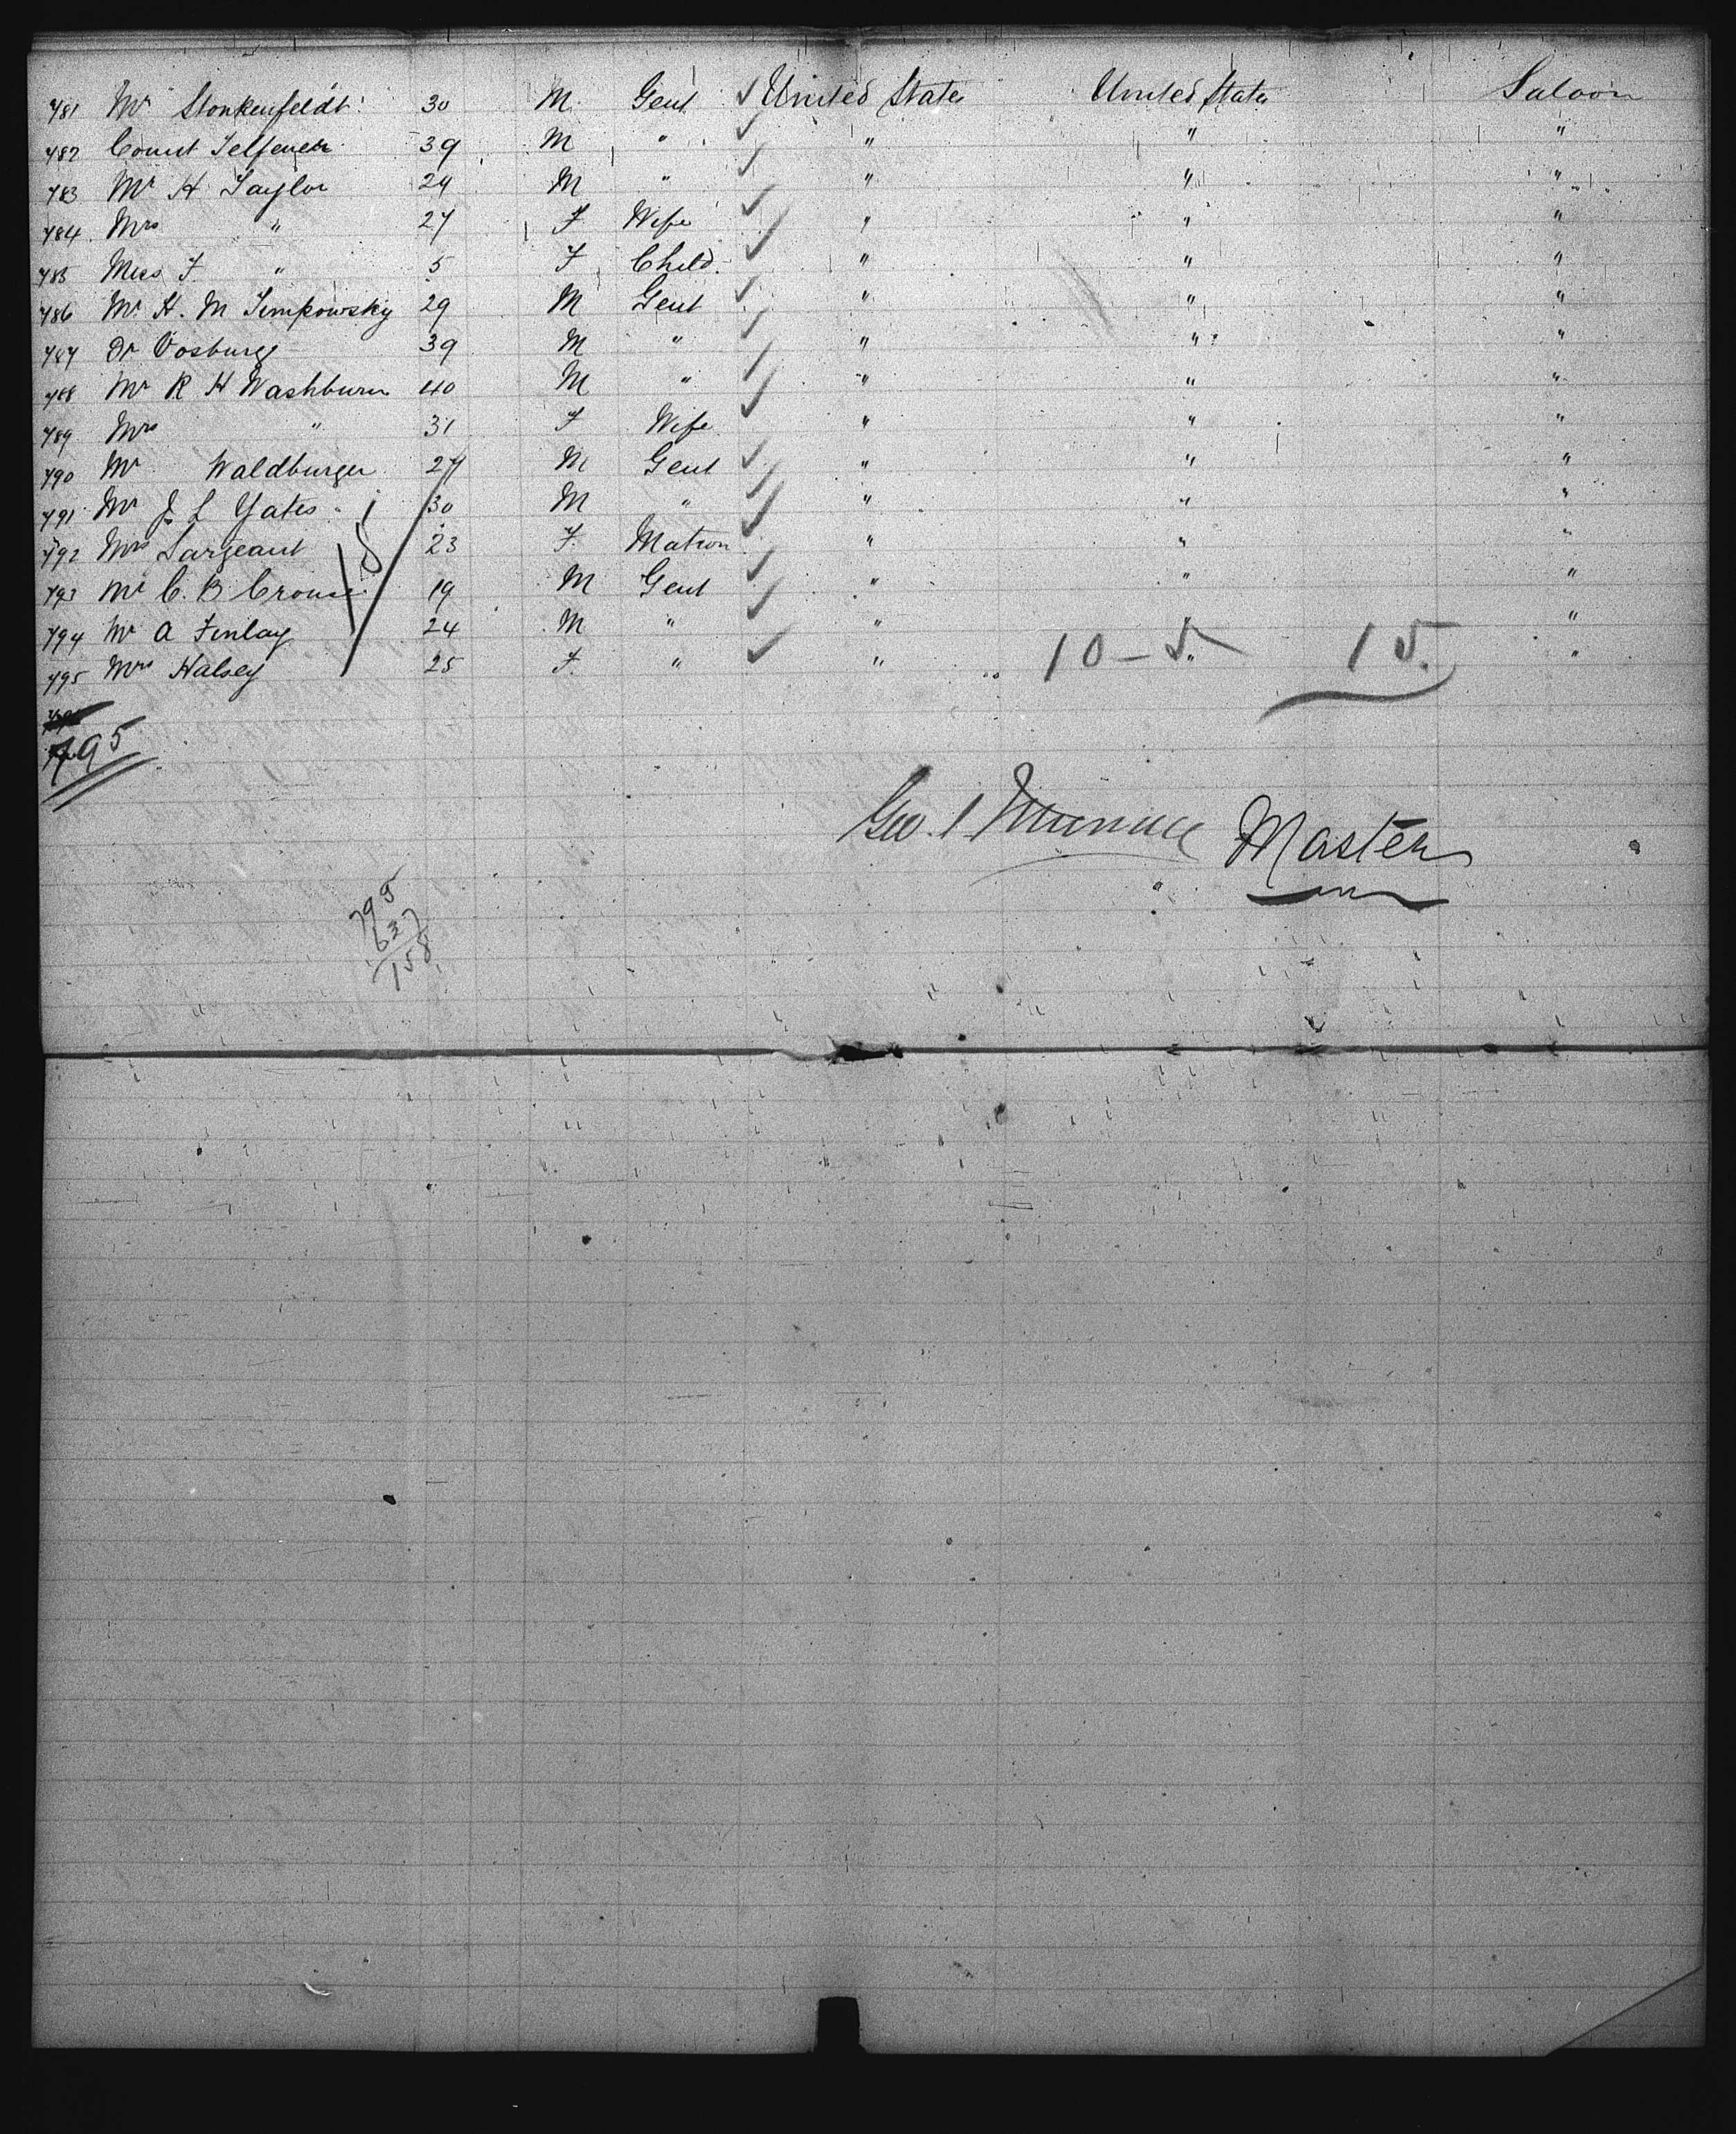 781 Mr Stonkenfeldt 30 M Gent United States United States Saloon
782 Count Telfener 39 M " " " "
783 Mr H Taylor 29 M " " " "
784 Mrs " 27 F Wife " " "
785 Miss F " 5 F Child " " "
786 Mr H. M Timkowsky 29 M Gent " " "
787 Dr Vosburg 39 M " " " "
788 Mr R H Washburn 40 M " " " "
789 Mrs " 31 F Wife " " "
790 Mr Waldburger 27 M Gent " " "
791 Mr J L Yates 30 M " " " "
792 Mrs Sargeant 23 F. Matron " " "
793 Mr C. B Crouse 19 M Gent " " "
794 Mr A Finlay 24 M " " " "
795 Mrs Halsey 25 F. " " " "
10 - 5 15.
795
Geo. Master
795
637
158